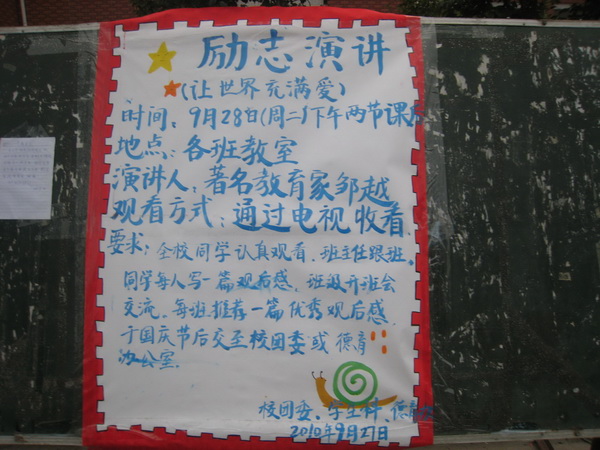 励志演讲
(让世界充满爱)
时间：9月28日(周二)下午两节课后
地点：各班教室
演讲人：著名教育家邹越
观看方式：通过电视收看
要求：全校同学认真观看．班主任跟班。
同学每人写一篇观后感．班级开班会
交流．每班推荐一篇优秀观后感．
于国庆节后交至校团委或德育
办公室．
校团委、学生科、德育
2010年9月27日